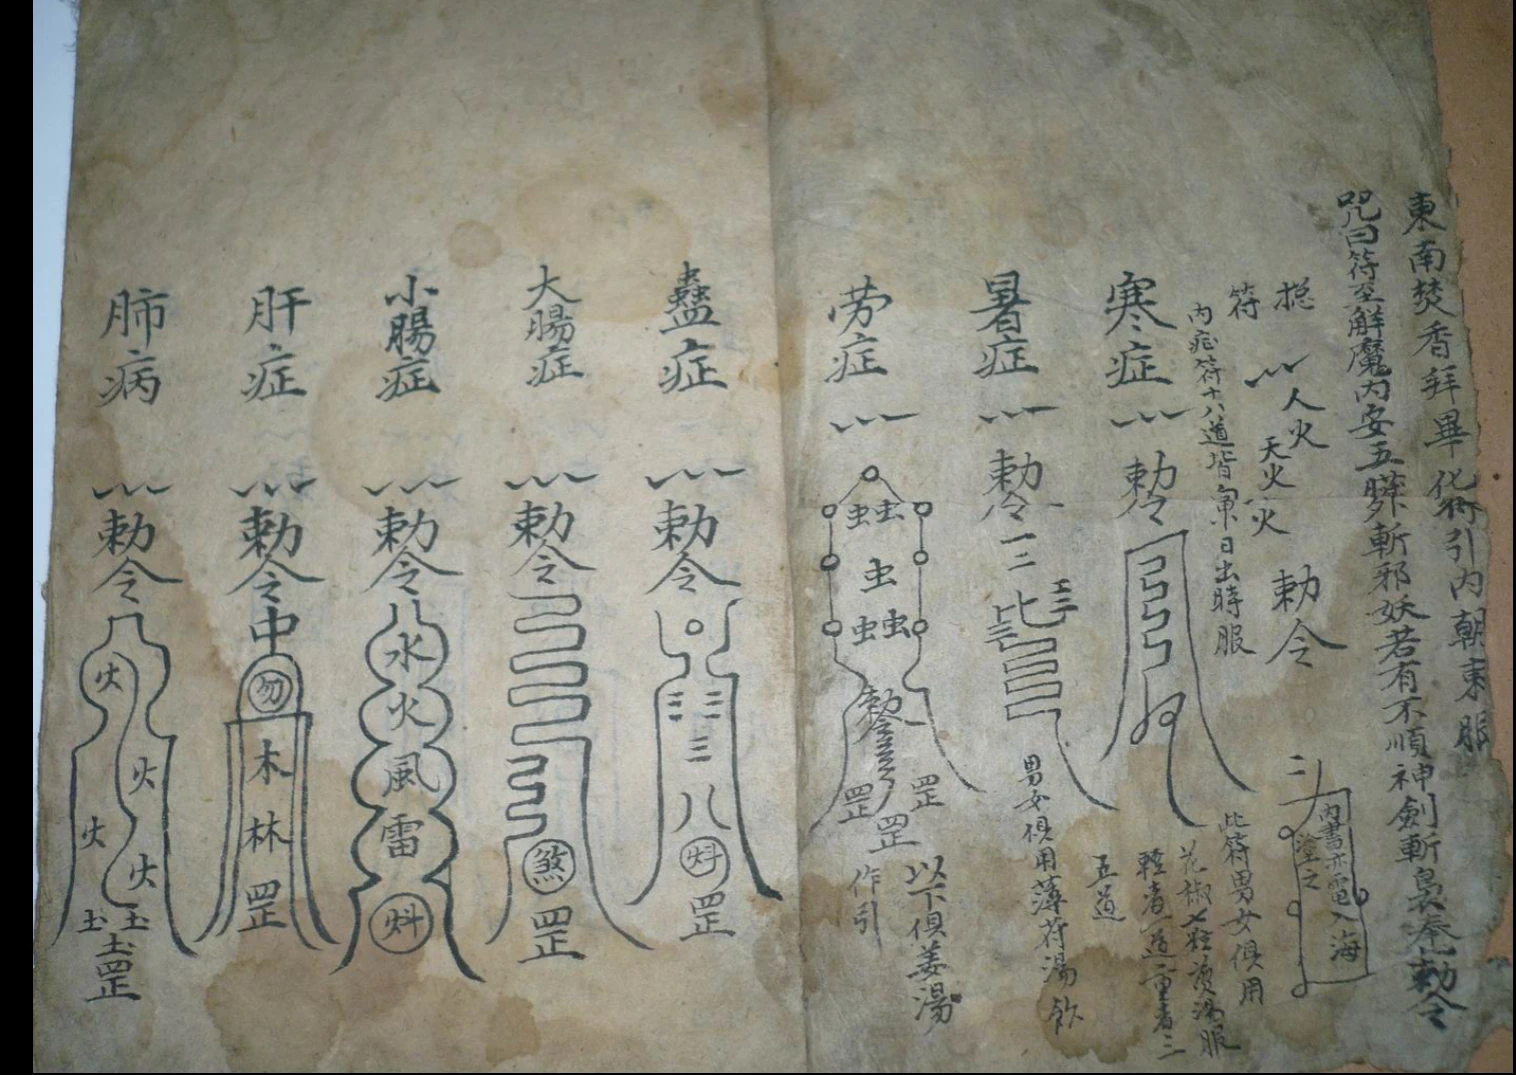 東南焚香拜畢化符引內朝東服
咒曰符至解魔內安五臟斬邪妖若有不順神劍斬裊奉勅令
總
符
人火
天火
火
勅令
內書
入海
塗之
內症符十八道皆向東日出時服
此符男女俱用
花椒七粒煎湯服
輕者一道重者三
五道
寒症
勅令
暑症
勅令
男女俱用薄荷湯飲
勞症
虫虫
虫
虫虫
勅令
罡
罡
罡
以下俱姜湯
作引
蠱症
勅令
三三
三
八
罡
大腸症
勅令
煞
罡
小腸症
勅令
水
火
風
雷
肝症
勅令
中
勿
木
林
罡
肺病
勅令
火
火
火
火
罡